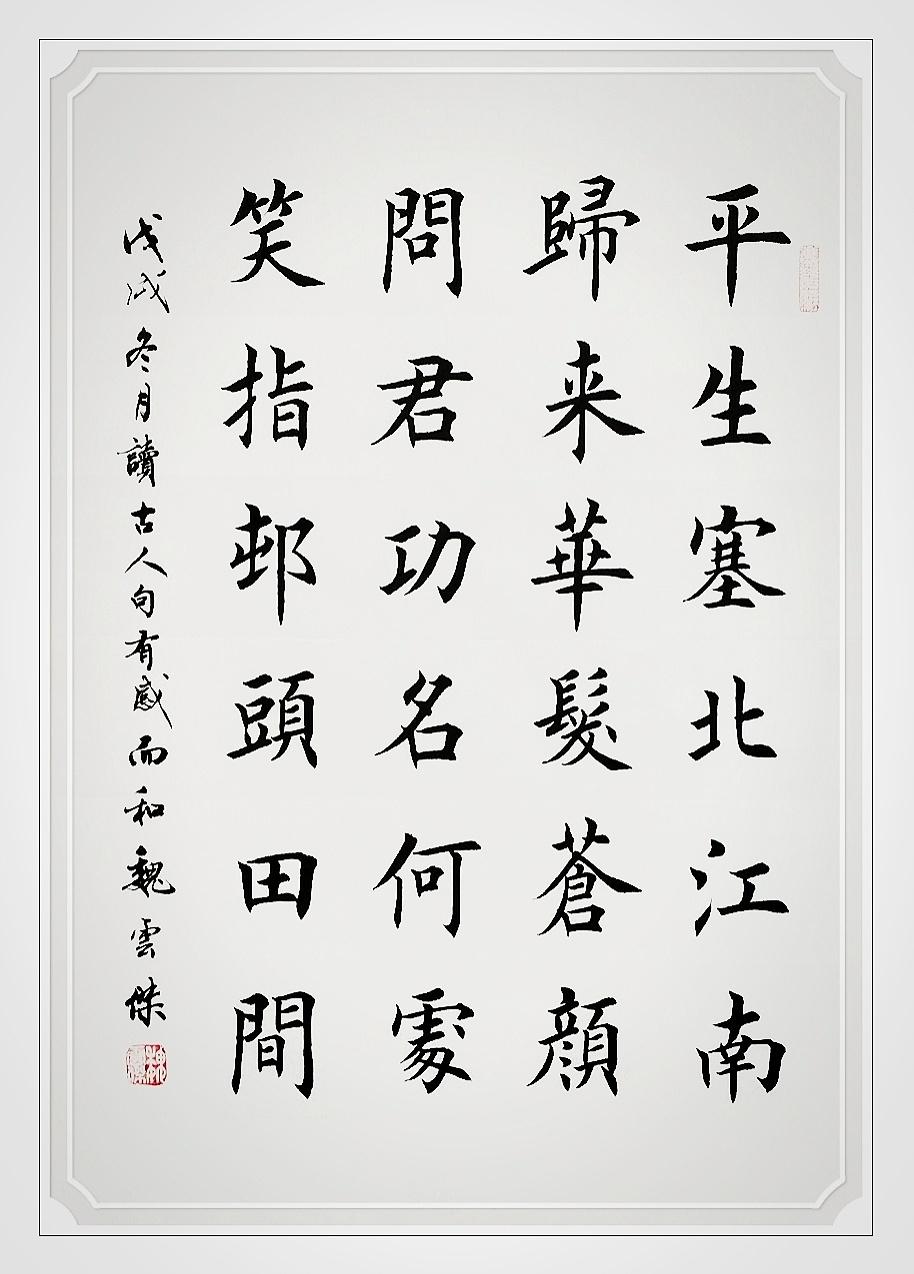 平生塞北江南
歸来華髮蒼顔
問君功名何處
笑指邨頭田間
戊戌冬月讀古人句有感而和魏雲傑